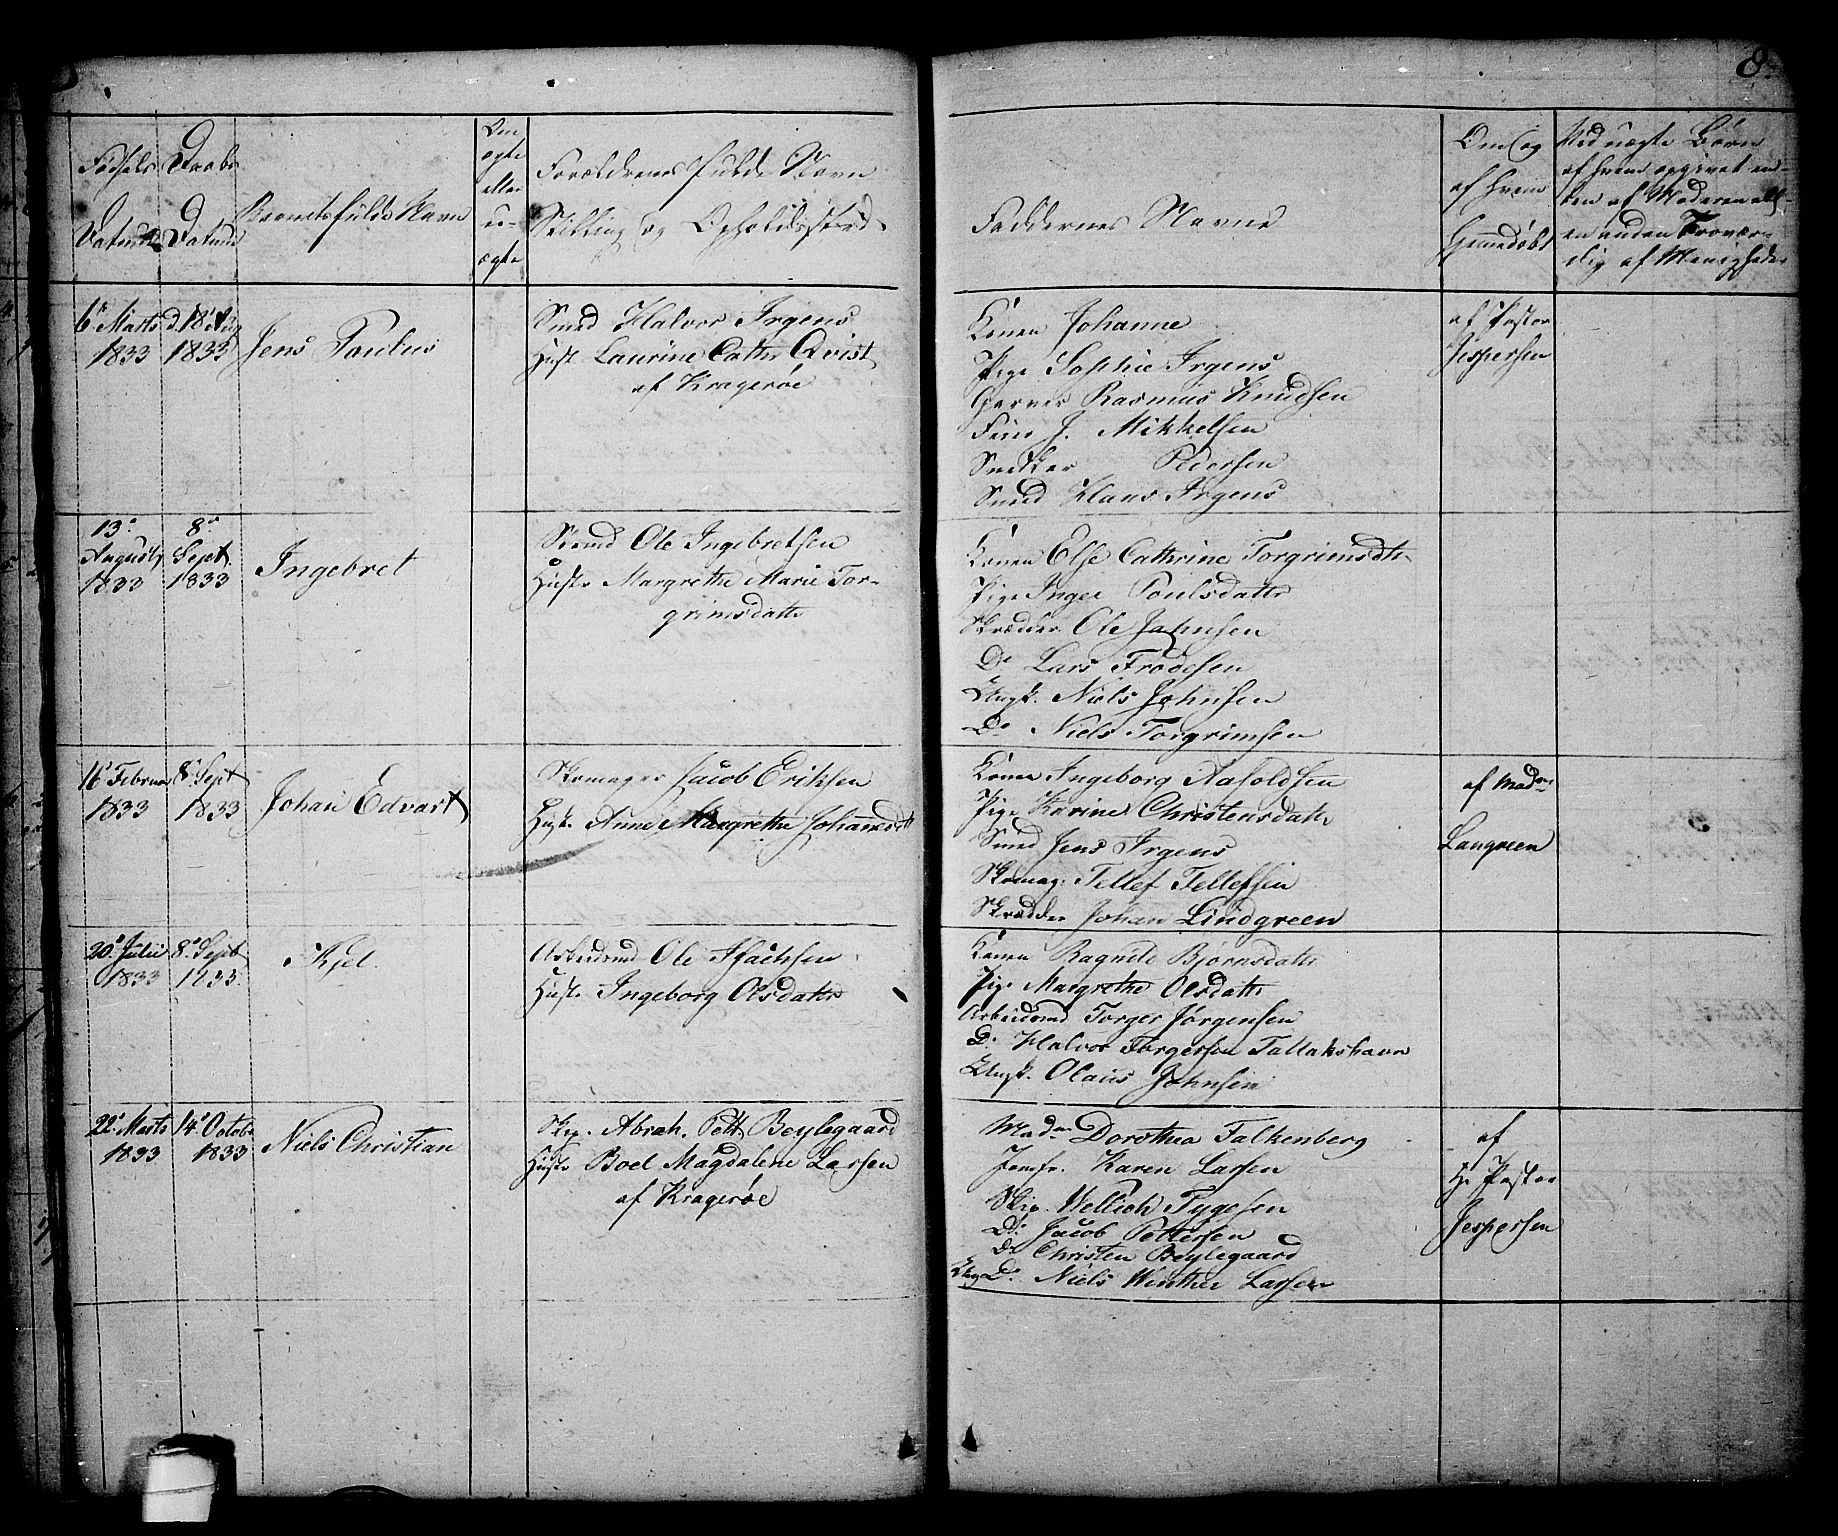 8
Fødsels
Datum
Daabs
Datum
Barnets fulde Navn
Om
ægte
eller
u-
ægte
Forældrenes fulde Navn
Stilling og Opholdssted
Faddernes Navne
Om og
af hvem
hjemmedøbt
Ved uægte Børn
af hvem opgivet en-
ten af Moderen ell-
en anden Trovær-
dig af Menigheden
6te Marts
1833
d. 18 Aug
1833
Jens Paulus
Smed Halvor Irgens
Hust. Laurine Cathr Qvist
af Kragerøe
Konen Johanne
Pige Sophie Irgens
Garver Rasmus Knudsen
J. Mikkelsen
Snedker Pedersen
Smed Klaus Irgens
af Pastor
Jespersen
13de
August
1833
8de
Sept.
1833
Ingebret
Sømd Ole Ingebretsen
Hustr Margrethe Marie Tor-
grimsdattr
Konen Else Cathrine Torgrimsdtr
Pige Inger Poulsdattr
Skrædder Ole Johnsen
Do Lars Frodesen
Ungk. Niels Johnsen
Do Niels Torgrimsen
16 Februar
1833
8 Sept
1833
Johan Edvart
Skomager Jacob Eriksen
Hustr Anne Margrethe Johannsdtt
Konen Ingeborg Aasoldsen
Pige Karine Christensdattr
Smed Jens Irgens
Skomag. Tellef Tellefsen
Skrædder Johan Lindgreen
af Madm
Langreen
20 Julii
1833
8 Sept
1833
Kjel.
Arbeidsmd Ole Isachsen
Hustr Ingeborg Olsdattr
Konen Ragnild Bjørnsdattr
Pige Margrethe Olsdattr
Arbeidsmd Torger Jørgensen
Do Halvor Torgersen Tallakshavn
Ungk. Olaus Johnsen
22 Marts
1833
14 October
1833
Niels Christian
Skip. Abrah. Pett. Beylegaard
Hustr Boel Magdalene Larsen
af Kragerøe
Madm Dorothea Falkenberg
Jomfr. Karen Larsen
Skip. Wellich Tygesen
Do. Jacob Pettersen
Do Christen Beylegaard
Ungk Do. Niels Winther Larsen
af
Hr Pastor
Jespersen